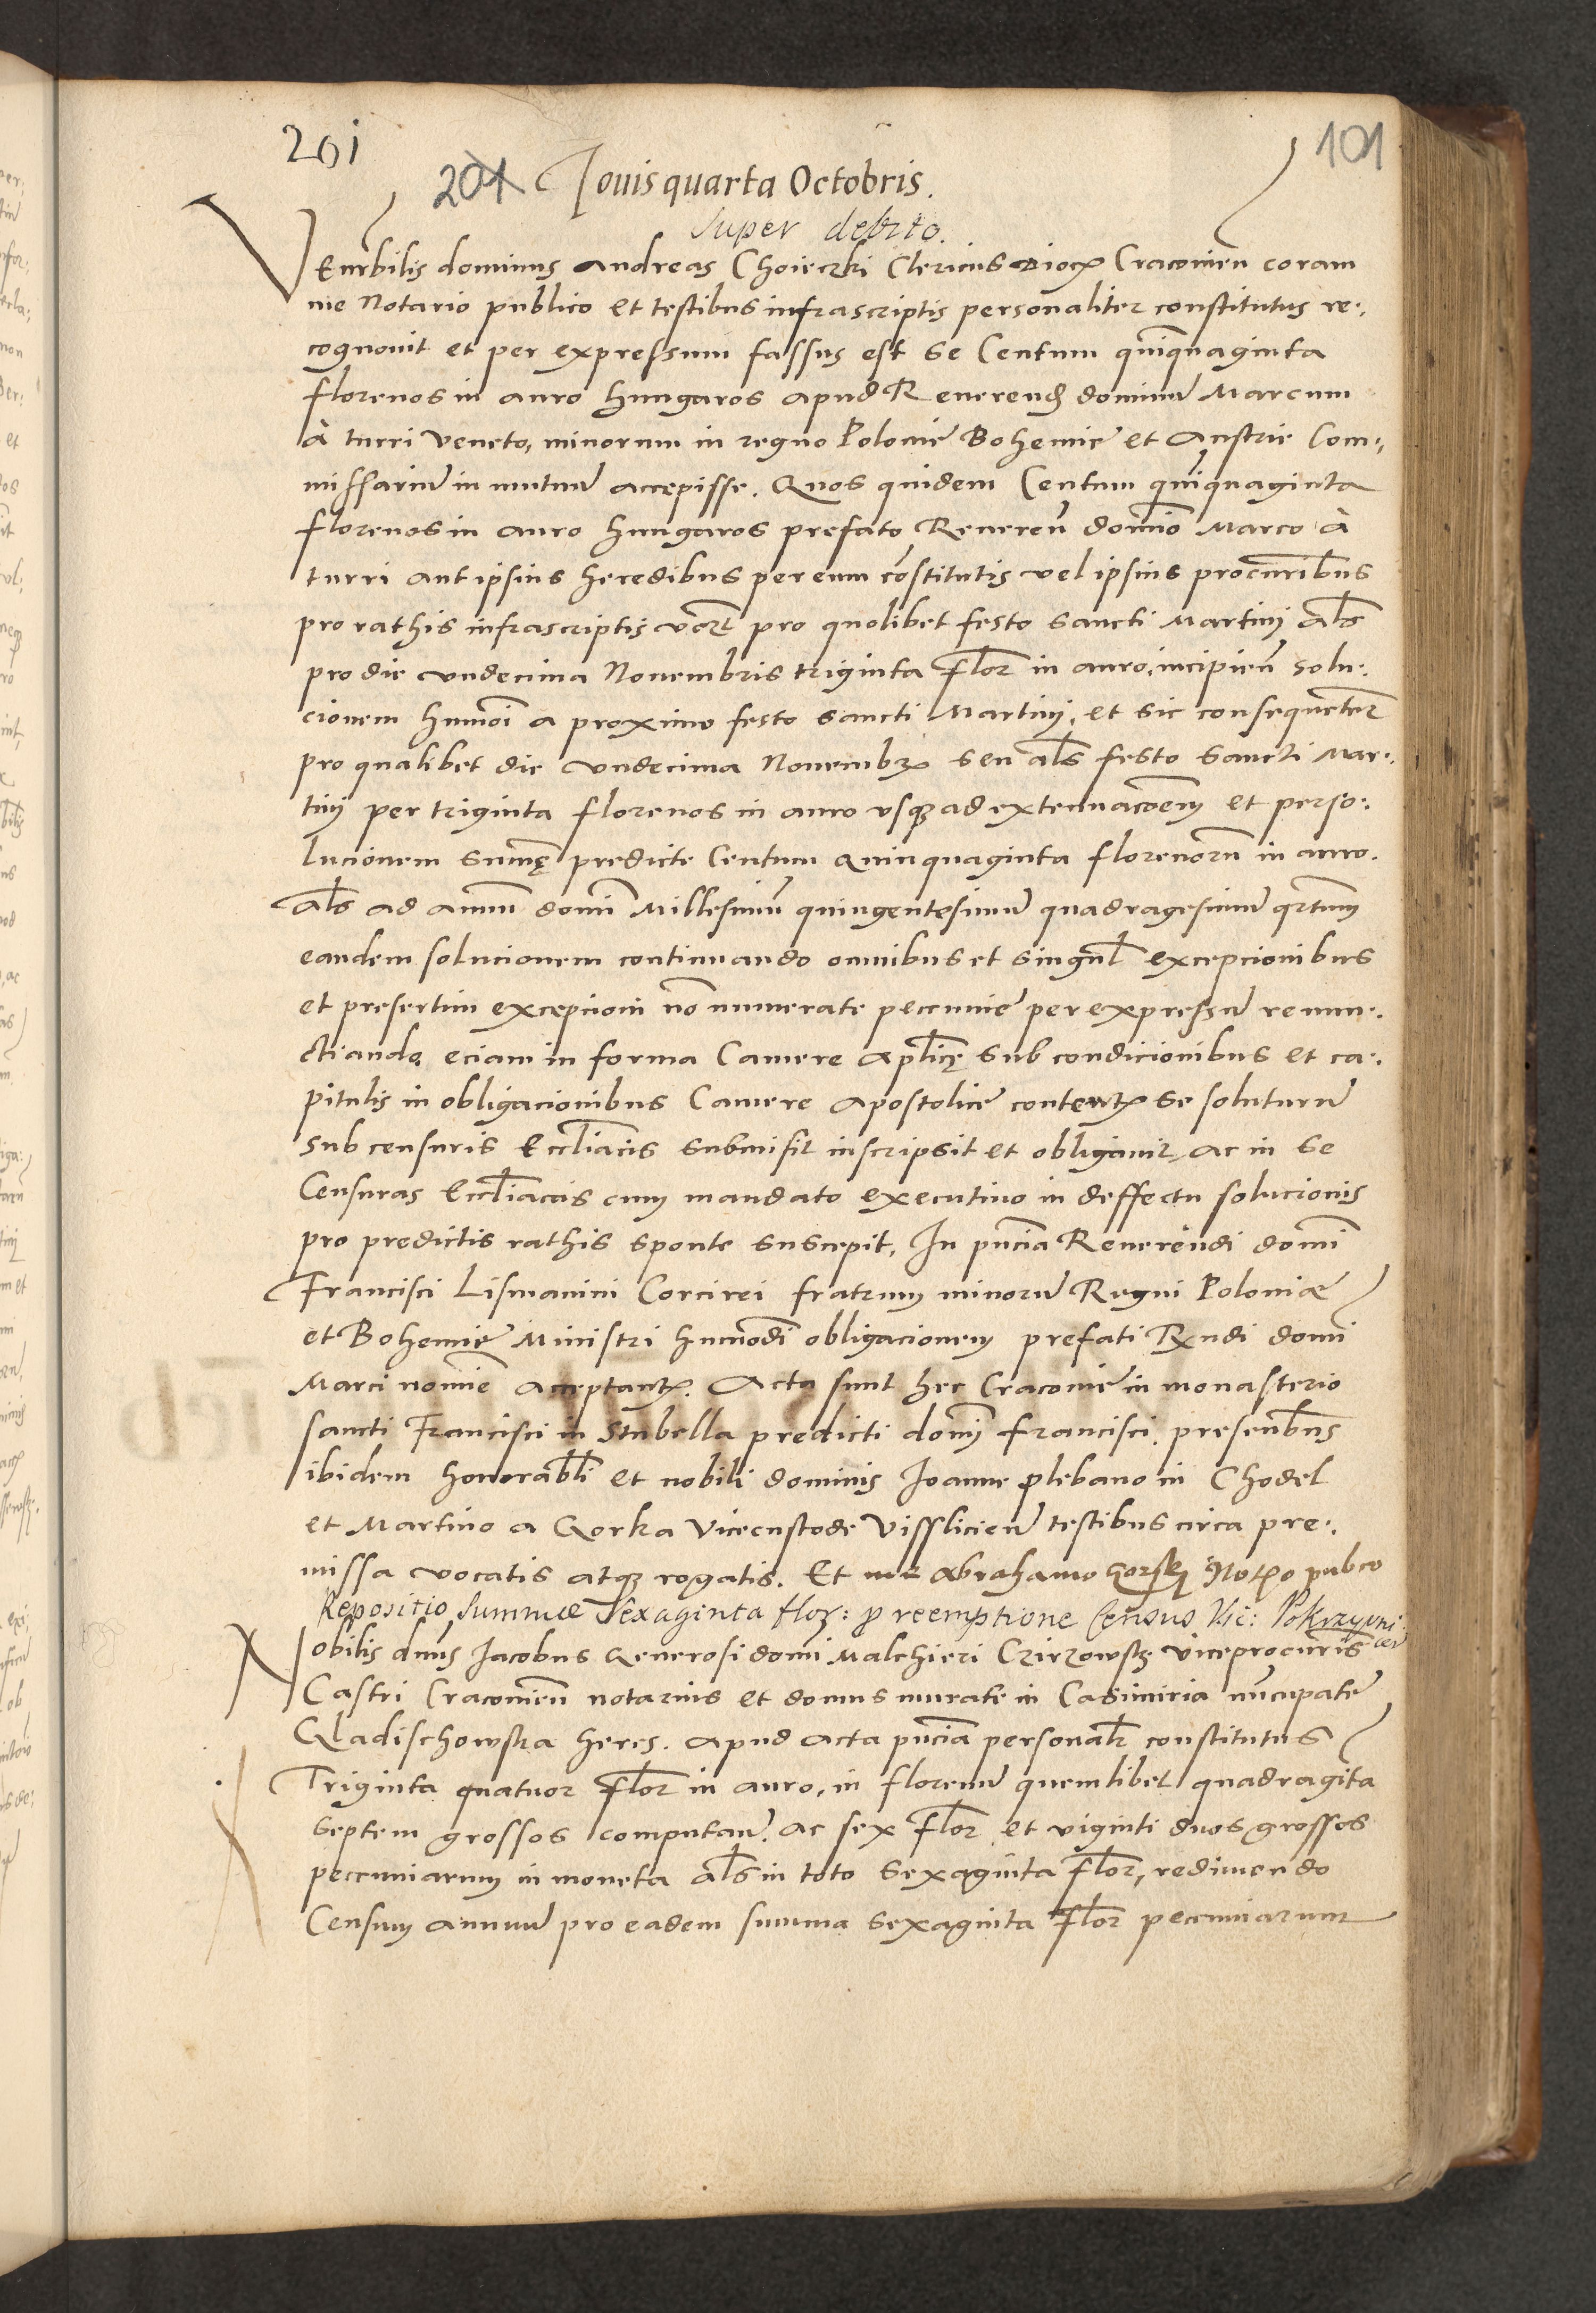 201
101
201 Iovis quarta Octobris.
Super debito.
Venerbilis dominus Andreas Choieczki Clericus dioc Cracovien coram
me Notario publico et testibus infrascriptis personaliter constitutus re-
cognovit et per expressum fassus est se Centum quinquaginta
florenos in auro hungaros apud Reverend dominu Marcum
à turri Veneto, minorum in regno Polonie Bohemie et Austrie Com-
missariu in mutuu accepisse. Quos quidem Centum quinquaginta
florenos in auro hungaros prefato Reveren domino Marco à
turri aut ipsius heredibus per eum constitutis vel ipsius procuribus
pro rathis infrascriptis pro quolibet festo sancti Martini als
pro die undecima Novembris triginta flor in auro, incipien solu-
cionem humoi a proximo festo sancti Martini, et sic consequenter
pro qualibet die undecima Novembr seu als festo sancti Mar-
tini per triginta florenos in auro usq ad extenuacoem et perso-
lucionem sume predicte Centum quinquaginta florenoru in auro.
als ad annu domi Millesimu quingentesimu quadragesimu qrtum
eandem solucionem continuando omnibus et singul excepcionibus
et presertim excepcioni no numerate pecunie per expressu renun-
ctiando eciam in forma Camere aplice sub condicionibus et ca-
pitulis in obligacionibus Camere apostolice content se soluturu
sub censuris Eccliacis submisit inscripsit et obligavit, ac in se
Censuras Eccliacas cum mandato executivo in deffectu solucionis
pro predictis rathis sponte suscepit, In pncia Reverendi domi
Francisci Lismanini Corcirei fratrum minoru Regni Poloniæ
et Bohemie Ministri humodi obligacionem prefati Rndi domi
Marci nomie acceptant. Acta sunt hec Cracovie in monasterio
sancti Francisci in stubella predicti domi Francisci, presentibus
ibidem honorabli et nobili dominis Joanne plebano in Chodel
et Martino a Gorka Vicecustode Visslicien testibus circa pre-
missa vocatis atq rogatis. Et me Abrahamo Gorsky Notario pubco
Repositio summæ Sexaginta flor: p reemptione Census Vic: Pokrzywni
cen
Nobilis dnus Jacobus Generosi domi Malchieri Czirzowsky viceprocuris
Castri Cracovien notarius et domus murate in Casimiria nuncupate
Gladischowska heres. Apud acta pncia personalr constitutus
Triginta quatuor flor in auro, in florenu quemlibet quadragita
septem grossos computan. ac sex flor et viginti duos grossos
pecuniarum in moneta als in toto sexaginta flor, redimendo
Censum annuu pro eadem summa sexaginta flor pecuniarum